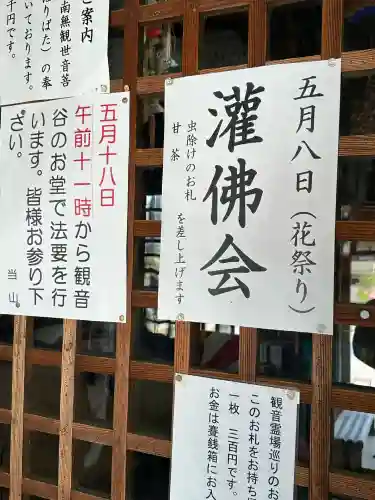 ご案内
南無観世音菩
(のぼり ばた)の奉
ております。
千円です。
五月八日（花祭り）
灌佛会
虫除けのお札
甘茶
を差し上げます
五月十八日
午前十一時から観音
谷のお堂で法要を行
います。皆様お参り下
さい。
当山
観音霊場巡りのお
このお札をお持ち
一枚 三百円です
お金は賽銭箱にお入